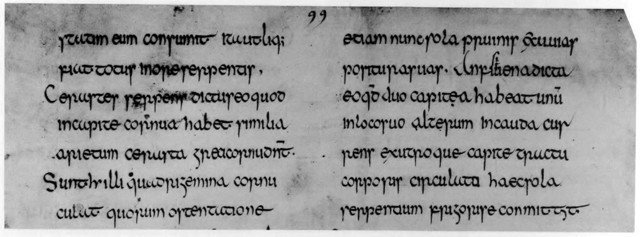 99
statim eum consumit itautliq;
fiat totus inore serpentis,
Cerastes serpens dictus eoquod
incapite cornua habet similia
arietum cerasta
Sunt illi quadrigemina cornu
culat quorum ostentatione
etiam nunc sola pruinis exuvias
positura suas. Anfisbena dicta
eoqd duo capitea habeat unū
inlocosuo alterum incauda cur
rens exutroque capite tractu
corporis circulato haecsola
serpentium frigorise conmittit